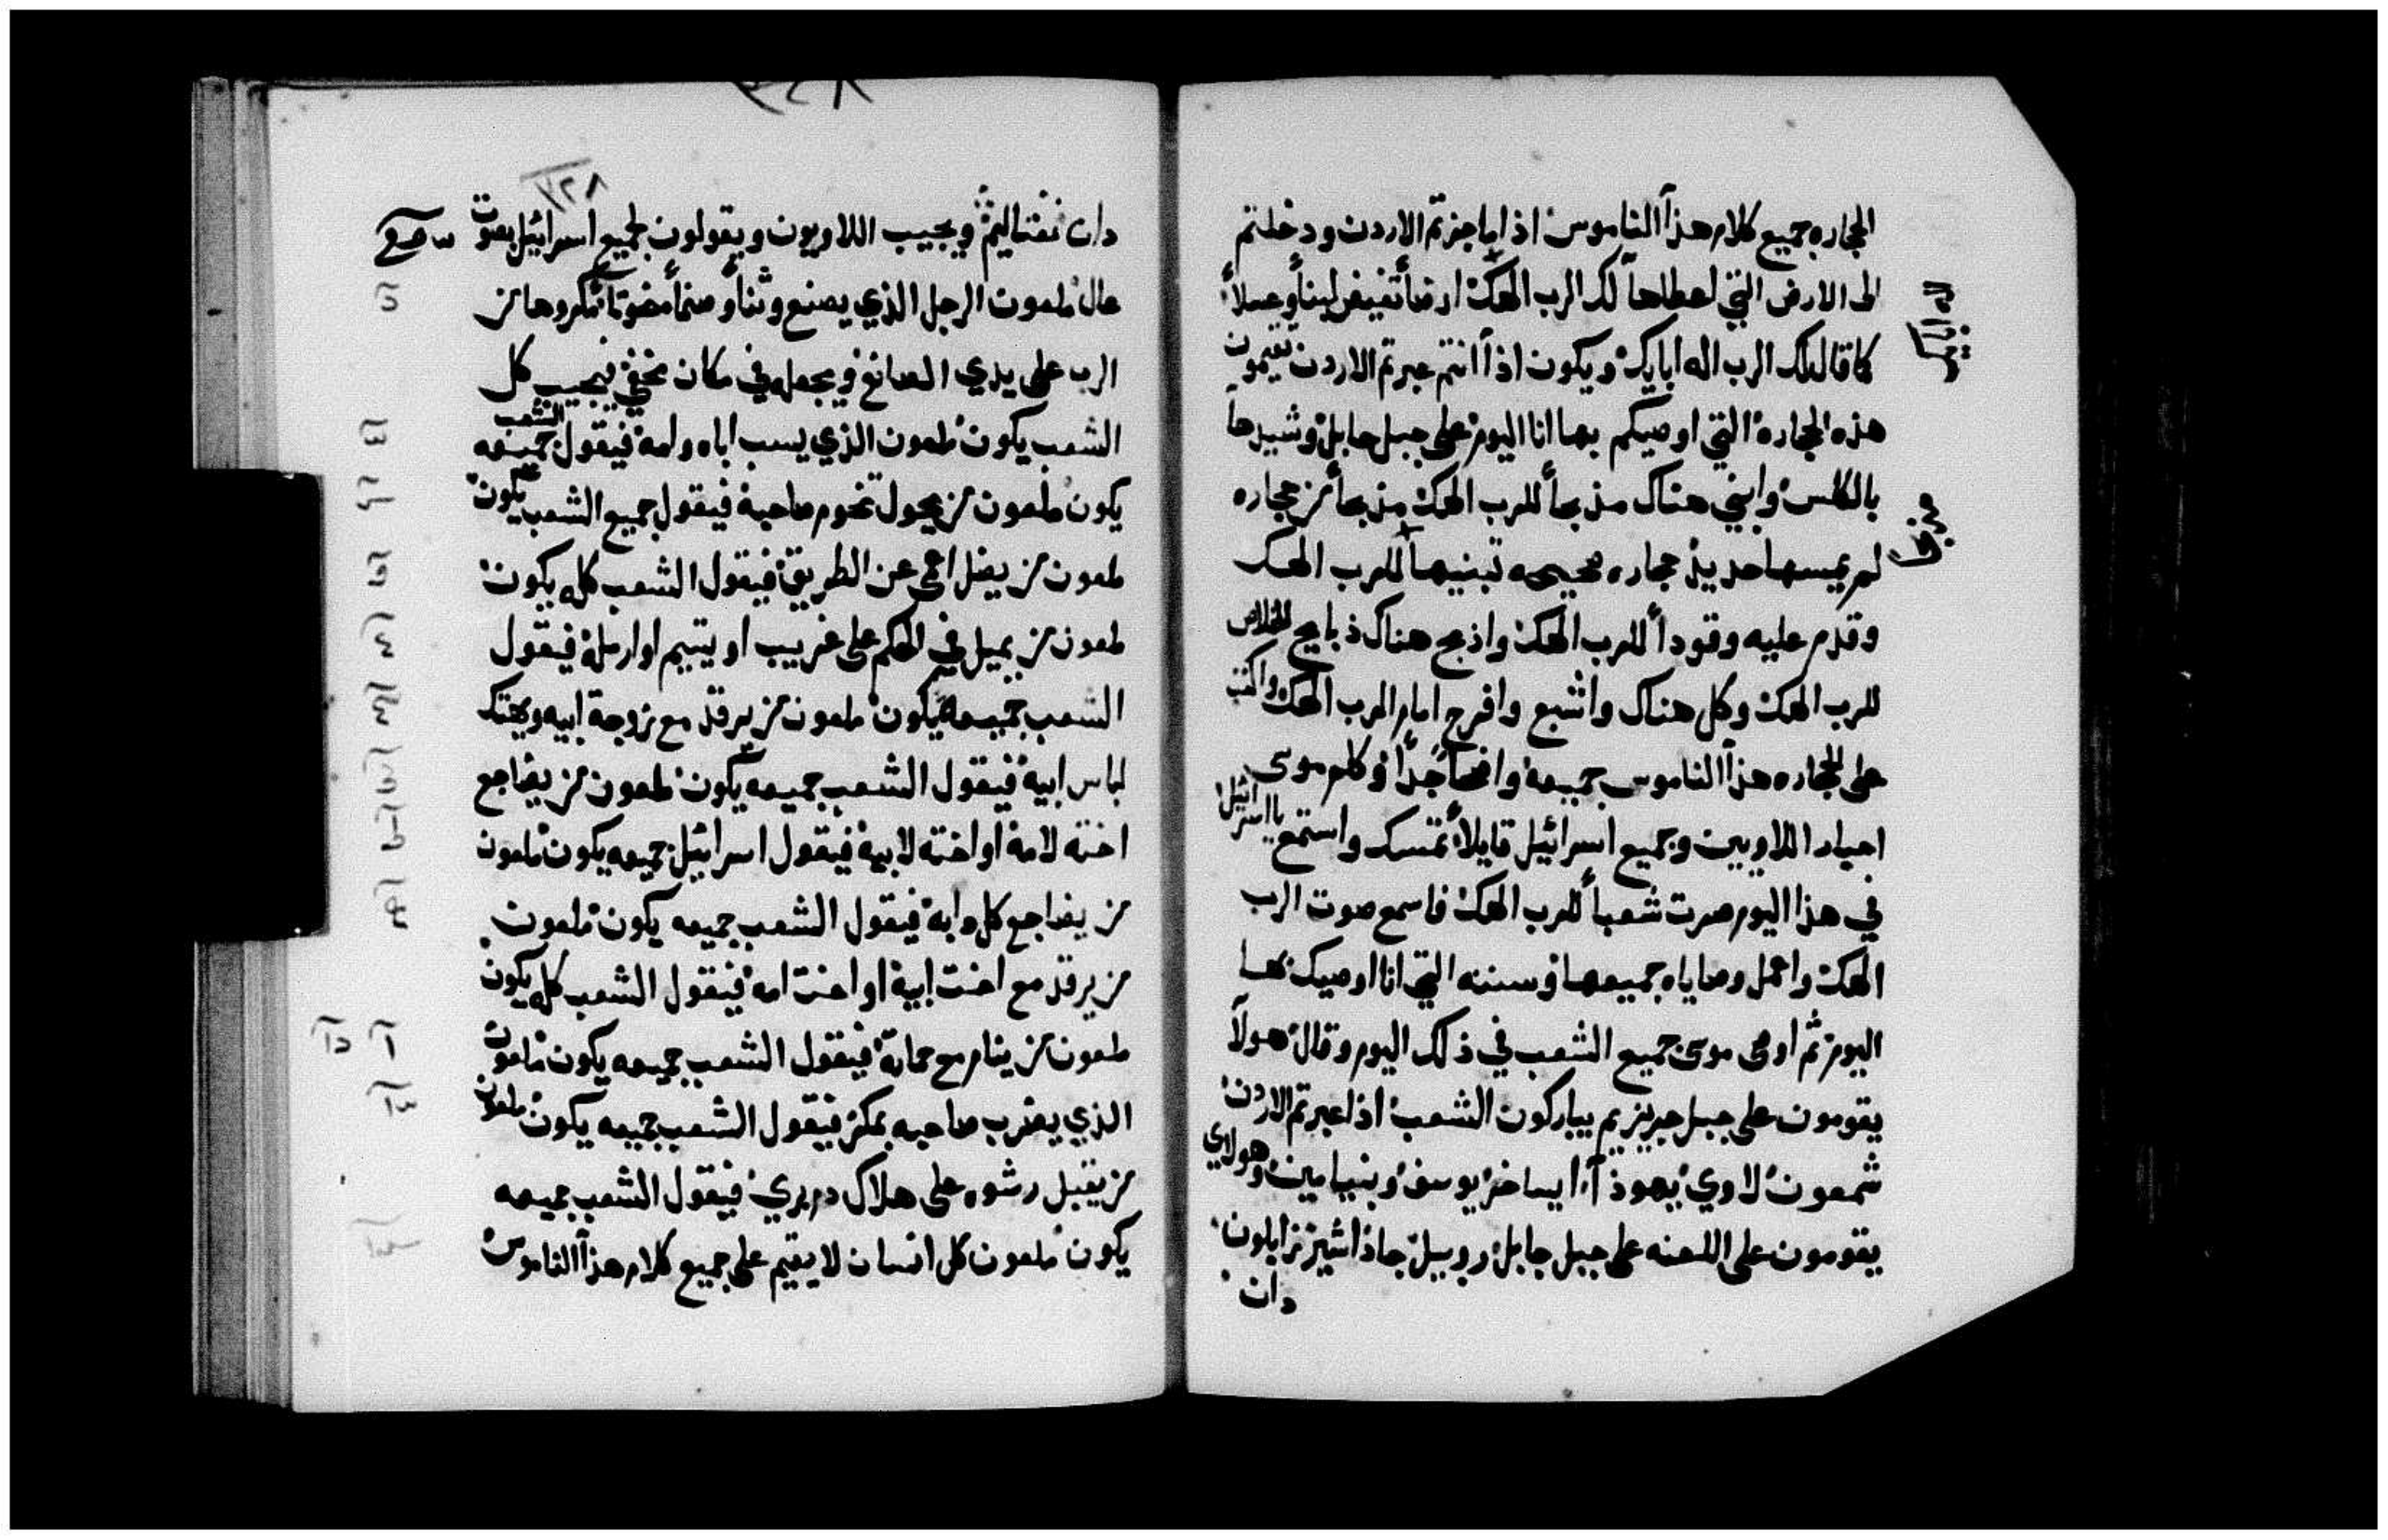 الحجاره جميع كلام هذا الناموس اذا ما جزتم الاردن ودخلتم
الى الارض التي اعطاها لك الرب الهك ارضاً تفيض لبناً وعسلاً
كما قال لك الرب اله ابايك ويكون اذا انتم عبرتم الاردن تقيمون
هذه الحجاره التي اوصيكم بها انا اليوم على جبل جابل وشيدها
بالكلس وابني هناك مذبحاً للرب الهك مذبحاً من حجاره
لم يمسها حديد حجاره صحيحه تبنيها للرب الهك
وقدم عليه وقوداً للرب الهك واذبح هناك ذبايح للخلاص
للرب الهك وكل هناك واشبع وافرح امام الرب الهك واكتب
على الحجاره هذا الناموس جميعه واضحاً جداً وكلم موسى
احبار اللاويين وجميع اسرائيل قايلاً تمتسك واستمع يا اسرائيل
في هذا اليوم صرت شعباً للرب الهك فاسمع صوت الرب
الهك واعمل وصاياه جميعها وسننه التي انا اوصيك بها
اليوم ثم اوصى موسى جميع الشعب في ذلك اليوم وقال هولآ
يقومون على جبل جريزيم يباركون الشعب اذا عبرتم الاردن
شمعون لاوي يهوذا ايساخر يوسف وبنيامين وهولاي
يقومون على اللعنه على جبل جابل روبيل جاد اشير زابلون
دان
١٢٨
دان نفتاليم ويجيب اللاويون ويقولون لجميع اسرائيل بصوت
عال ملعون الرجل الذي يصنع وثناً وصنماً مكروها من
الرب على يدي الصانع ويجعله في مكان مخفي فيجيب كل
الشعب يكون ملعون الذي يسب اباه وامه فيقول الشعب جميعه
يكون ملعون من يحول تخوم صاحبه فيقول جميع الشعب يكون
ملعون من يضل اعمى عن الطريق فيقول الشعب كله يكون
ملعون من يميل في الحكم على غريب او يتيم او ارمله فيقول
الشعب جميعه يكون ملعون من يرقد مع زوجة ابيه ويهتك
لباس ابيه فيقول الشعب جميعه يكون ملعون من يضاجع
اخته لامه او اخته لابيه فيقول اسرائيل جميعه يكون ملعون
من يضاجع كل دابه فيقول الشعب جميعه يكون ملعون
من يرقد مع اخت ابيه او اخت امه فيقول الشعب كله يكون
ملعون من ينام مع حماته فيقول الشعب جميعه يكون ملعون
الذي يضرب صاحبه بمكر فيقول الشعب جميعه يكون ملعون
من يقبل رشوه على هلاك دم بري فيقول الشعب جميعه
يكون ملعون كل انسان لا يقيم على جميع كلام هذا الناموس